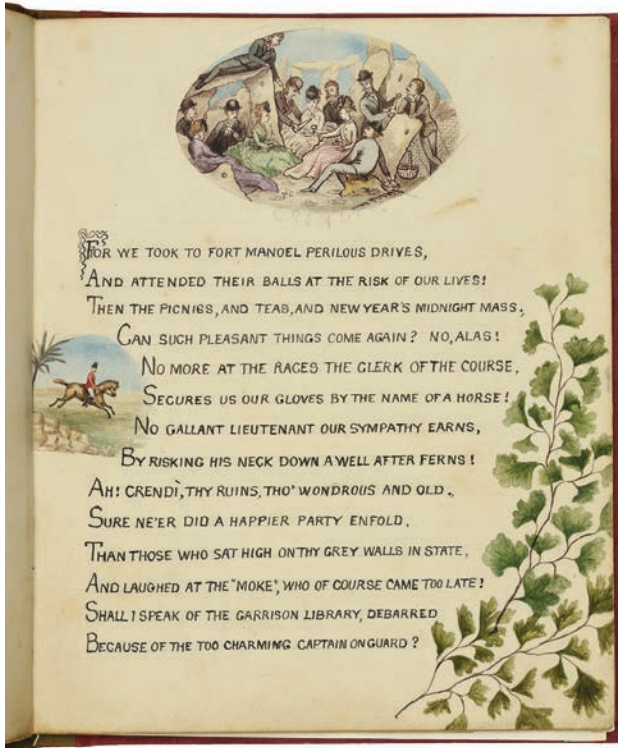 CRENDI
FOR WE TOOK TO FORT MANOEL PERILOUS DRIVES,
AND ATTENDED THEIR BALLS AT THE RISK OF OUR LIVES!
THEN THE PICNICS, AND TEAS, AND NEW YEAR'S MIDNIGHT MASS,
CAN SUCH PLEASANT THINGS COME AGAIN? NO, ALAS!
NO MORE AT THE RACES THE CLERK OF THE COURSE,
SECURES US OUR GLOVES BY THE NAME OF A HORSE!
NO GALLANT LIEUTENANT OUR SYMPATHY EARNS,
BY RISKING HIS NECK DOWN A WELL AFTER FERNS!
AH! CRENDÌ, THY RUINS, THO' WONDROUS AND OLD,
SURE NE'ER DID A HAPPIER PARTY ENFOLD,
THAN THOSE WHO SAT HIGH ON THY GREY WALLS IN STATE,
AND LAUGHED AT THE "MOKE", WHO OF COURSE CAME TOO LATE!
SHALL I SPEAK OF THE GARRISON LIBRARY, DEBARRED
BECAUSE OF THE TOO CHARMING CAPTAIN ON GUARD?